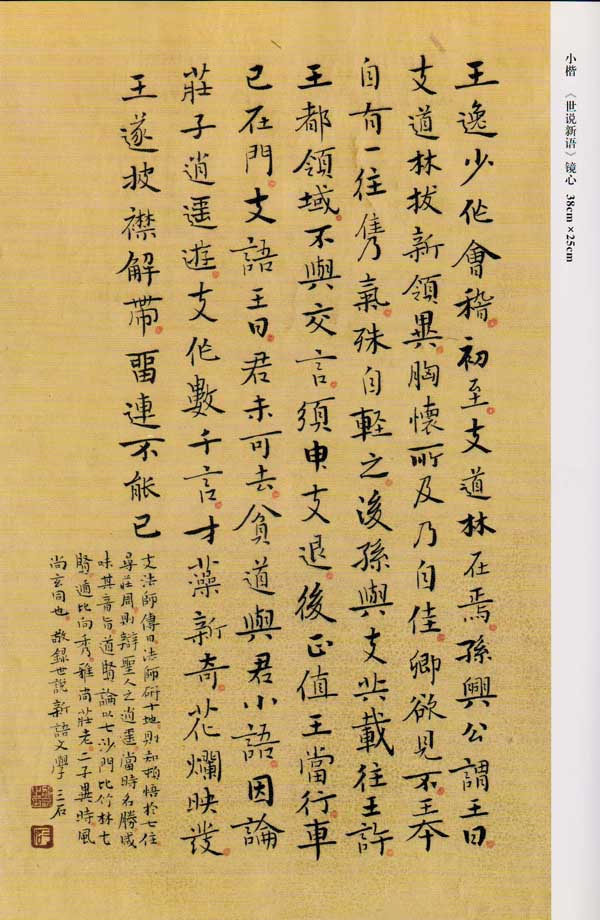 小楷 《世说新语》镜心 38cm×25cm
王逸少作會稽初至支道林在焉孫興公謂王曰
支道林拔新領異胸懷所及乃自佳卿欲見不王本
自有一往雋氣殊自輕之後孫與支共載往王許
王都領域不與交言須臾支退後正值王當行車
已在門支語王曰君未可去貧道與君小語因論
莊子逍遙遊支作數千言才藻新奇花爛映發
王遂披襟解帶留連不能已
支法師傳曰法師研十地則知頓悟於七住
尋莊周則辯聖人之逍遙當時名勝咸
味其音旨道賢論以七沙門比竹林七
賢遁比向秀雅尚莊老二子異時風
尚玄同也 敬錄世說新語文學 三石